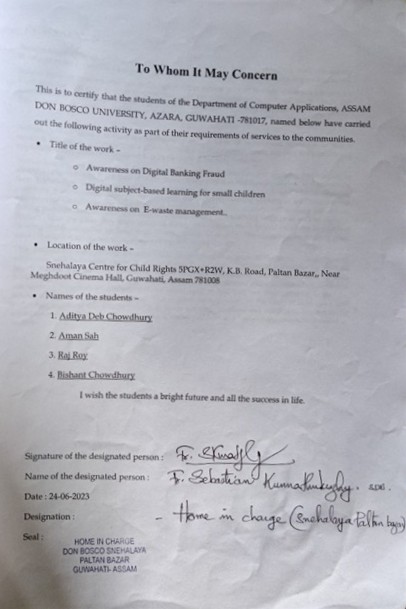 To Whom It May Concern
This is to certify that the students of the Department of Computer Applications, ASSAM
DON BOSCO UNIVERSITY, AZARA, GUWAHATI -781017, named below have carried
out the following activity as part of their requirements of services to the communities.
• Title of the work –
o Awareness on Digital Banking Fraud
o Digital subject-based learning for small children
o Awareness on E-waste management.
• Location of the work –
Snehalaya Centre for Child Rights 5PGX+R2W, K.B. Road, Paltan Bazar,, Near
Meghdoot Cinema Hall, Guwahati, Assam 781008
• Names of the students –
1. Aditya Deb Chowdhury
2. Aman Sah
3. Raj Roy
4. Bishant Chowdhury
I wish the students a bright future and all the success in life.
Signature of the designated person :
Name of the designated person : Fr. Sebastian
Date : 24-06-2023
Designation : - Home in charge (Snehalaya Paltan
Seal :
HOME IN CHARGE
DON BOSCO SNEHALAYA
PALTAN BAZAR
GUWAHATI- ASSAM